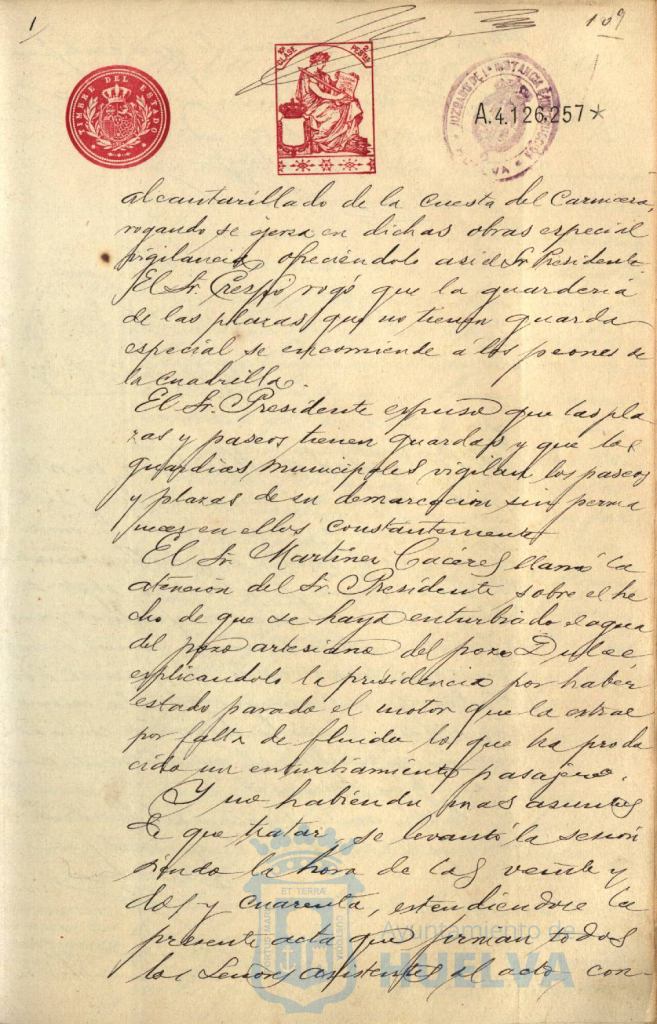 1
109
TIMBRE DEL ESTADO
10ª CLASE 2 PESETAS
JUZGADO DE 1ª INSTANCIA
HUELVA
A.4.126.257*
alcantarillado de la cuesta del Carnicero,
rogando se ejerza en dichas obras especial
vigilancia, ofreciéndolo así el Sr. Presidente.
El Sr. Crespo rogó que la guardería
de las plazas que no tienen guarda
especial se encomiende á los peones de
la cuadrilla.
El Sr. Presidente expuso que las pla
zas y paseos tienen guardas y que los
guardias municipales vigilan los paseos
y plazas de su demarcacion sin perma
necer en ellos constantemente
El Sr. Martinez Caceres llamó la
atención del Sr. Presidente sobre el he
cho de que se haya enturbiado el agua
del pozo artesiano del pozo Dulce
explicandolo la presidencia por haber
estado parado el motor que la extrae
por falta de fluido lo que ha produ
cido un enturbiamiento pasajero.
Y no habiendo mas asuntos
de que tratar, se levantó la sesión
siendo la hora de las veinte y
dos y cuarenta, estendiendose la
presente acta que firman todos
los Señores asistentes al acto con-
PORTUS MARIS ET TERRAE CUSTODIA
Ayuntamiento de
HUELVA